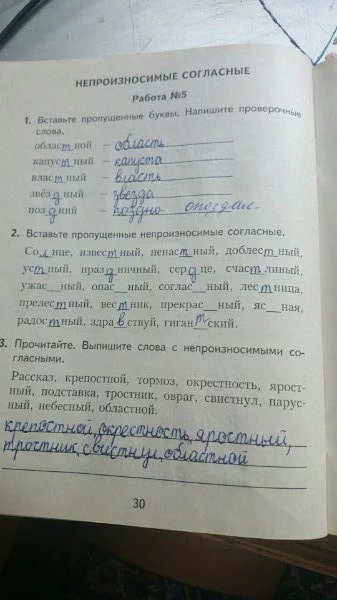 НЕПРОИЗНОСИМЫЕ СОГЛАСНЫЕ
Работа №5
1. Вставьте пропущенные буквы. Напишите проверочные
слова.
областной – область
капустный – капуста
властный – власть
звёздный – звезда
поздний – поздно опоздал
2. Вставьте пропущенные непроизносимые согласные.
Солнце, известный, ненастный, доблестный,
устный, праздничный, сердце, счастливый,
ужас__ный, опас__ный, соглас__ный, лестница,
прелестный, вестник, прекрас__ный, яс__ная,
радостный, здравствуй, гигантский.
3. Прочитайте. Выпишите слова с непроизносимыми со-
гласными.
Рассказ, крепостной, тормоз, окрестность, ярост-
ный, подставка, тростник, овраг, свистнул, парус-
ный, небесный, областной.
крепостной, окрестность, яростный,
тростник, свистнул, областной
30